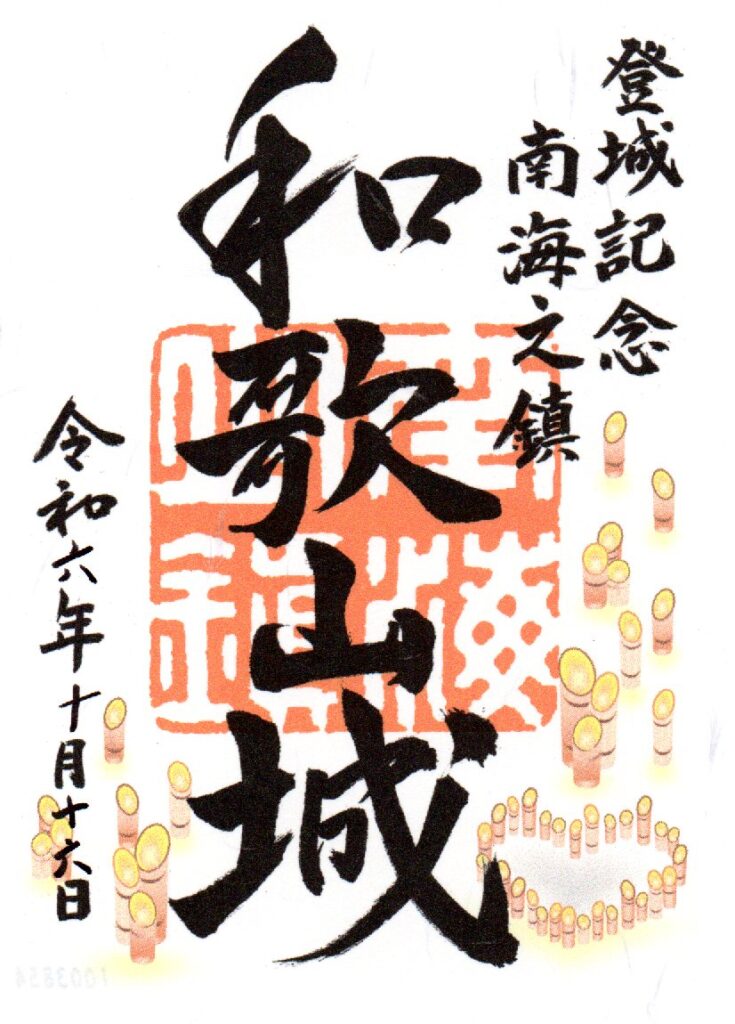 登城記念
南海之鎮
和歌山城
令和六年十月十六日